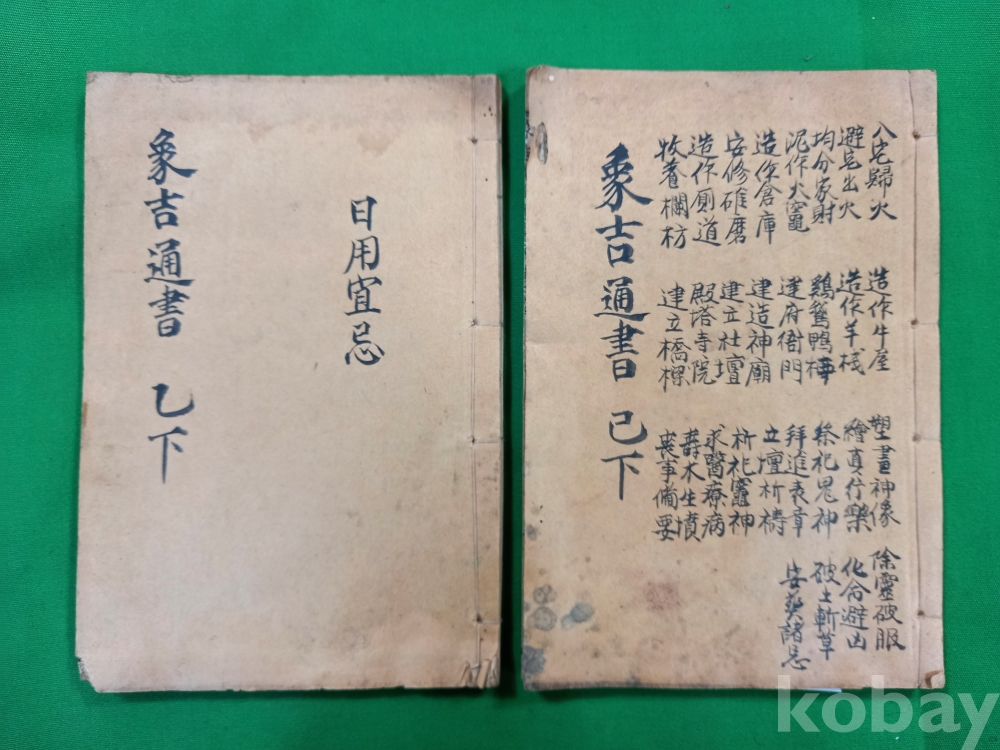 象吉通書 乙下
日用宜忌
象吉通書 己下
入宅歸火
避宅出火
均分家財
泥作火竈
造作倉庫
安修碓磨
造作厠道
牧養欄枋
造作牛屋
造作羊棧
鷄鵞鴨棲
建府衙門
建造神廟
建立社壇
殿塔寺院
建立橋樑
塑畫神像
繪真行樂
祭祀鬼神
拜進表章
立壇祈禱
祈祀竈神
求醫療病
壽木生墳
喪事備要
除靈破服
化命避凶
破土斬草
安葬諸忌
kobay